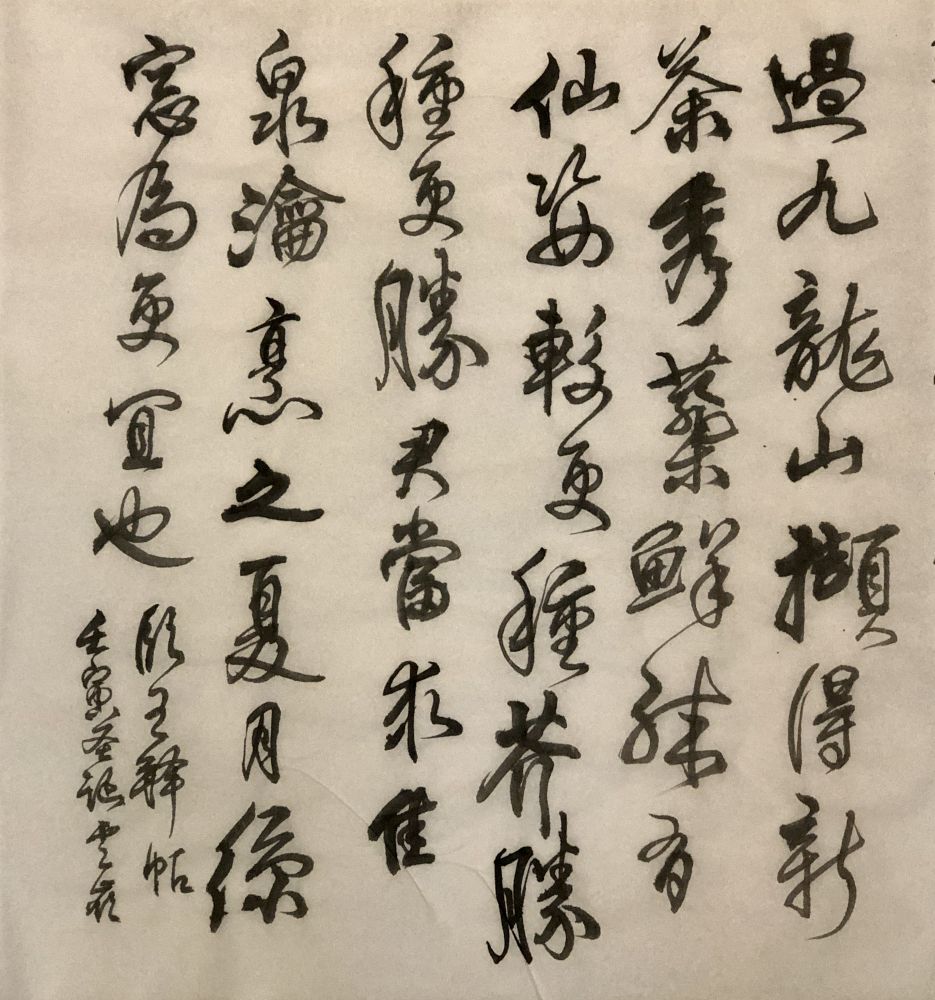 過九龍山擷得新
茶秀蘂鮮殊有
仙姿較更種芥勝
種更勝君當求佳
泉瀹烹之夏月綠
窓為更宜也
臨王鐸帖
壬寅圣誕雲嶺